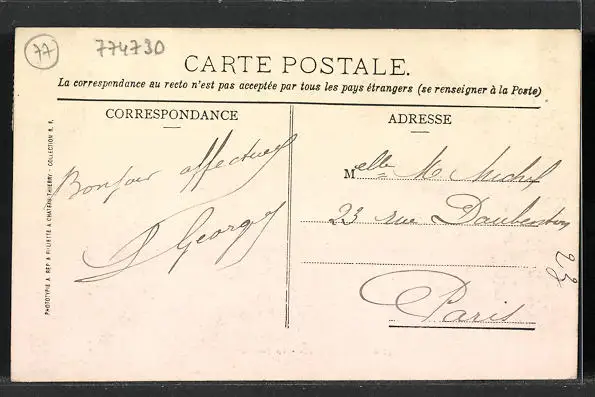 77
774730
CARTE POSTALE.
La correspondance au recto n'est pas acceptée par tous les pays étrangers (se renseigner à la Poste)
CORRESPONDANCE
Bonjour affectueux
Georges
ADRESSE
Melle M. Michel
23 rue Daubenton
Paris
23
PHOTOTYPIE A. REP. & FILLIETTE A CHATEAU-THIERRY - COLLECTION R. F.